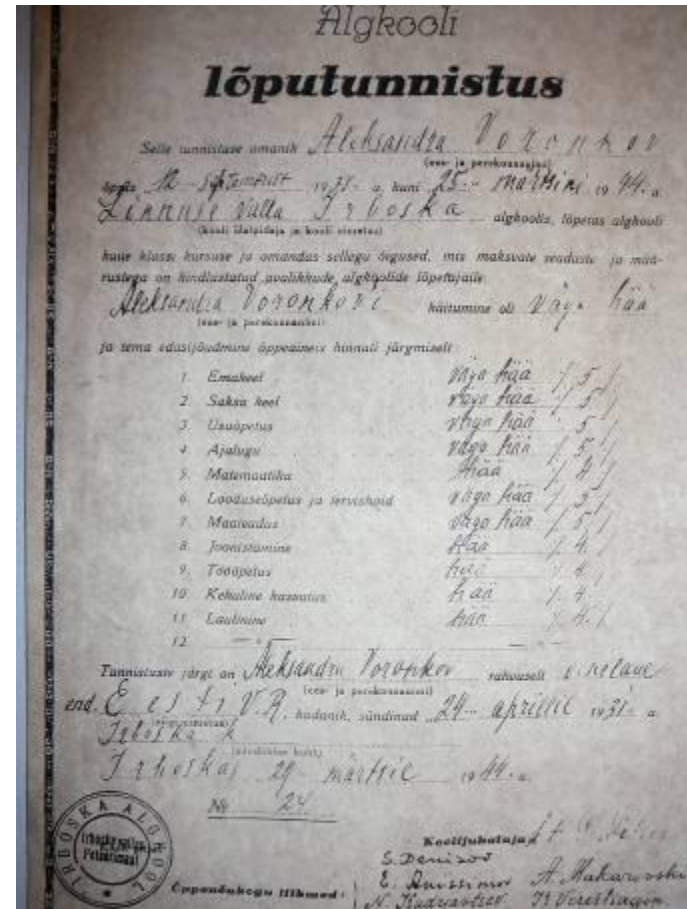 Algkooli
lõputunnistus
Selle tunnistuse omanik Aleksandra Voronkov
(ees- ja perekonnanimi)
õppis 12. septembrist 1938. a. kuni 25. märtsini 1944. a.
Linnuse valla Irboska algkoolis, lõpetas algkooli
(kooli ülalpidaja ja kooli nimetus)
kuue klassi kursuse ja omandas sellega õigused, mis maksvate seaduste ja mää-
rustega on kindlustatud avalikkude algkoolide lõpetajaile.
Aleksandra Voronkovi käitumine oli väga hää
(ees- ja perekonnanimi)
ja tema edasijõudmine õppeaineis hinnati järgmiselt:
1. Emakeel väga hää /5/
2. Saksa keel väga hää /5/
3. Usuõpetus väga hää /5/
4. Ajalugu väga hää /5/
5. Matemaatika hää /4/
6. Looduseõpetus ja tervishoid väga hää /5/
7. Maateadus väga hää /5/
8. Joonistamine hää /4./
9. Tööõpetus hää /4./
10. Kehaline kasvatus hää /4./
11. Laulmine hää /4./
12.
Tunnistuste järgi on Aleksandra Voronkov rahvuselt venelane
(ees- ja perekonnanimi)
end. Eesti V.R. kodanik, sündinud 24. aprillil 1931. a.
Irboska
(sündimise koht)
Irboskas 29 märtsil 1944. a.
№ 24
IRBOSKA ALGKOOL
Irboska vallas
Petserimaal
Koolijuhataja
S. Denisov
E. Anissimov A. Makarovski
Õppenõukogu liikmed: N. Kudrjavtsev V. Verestsagin